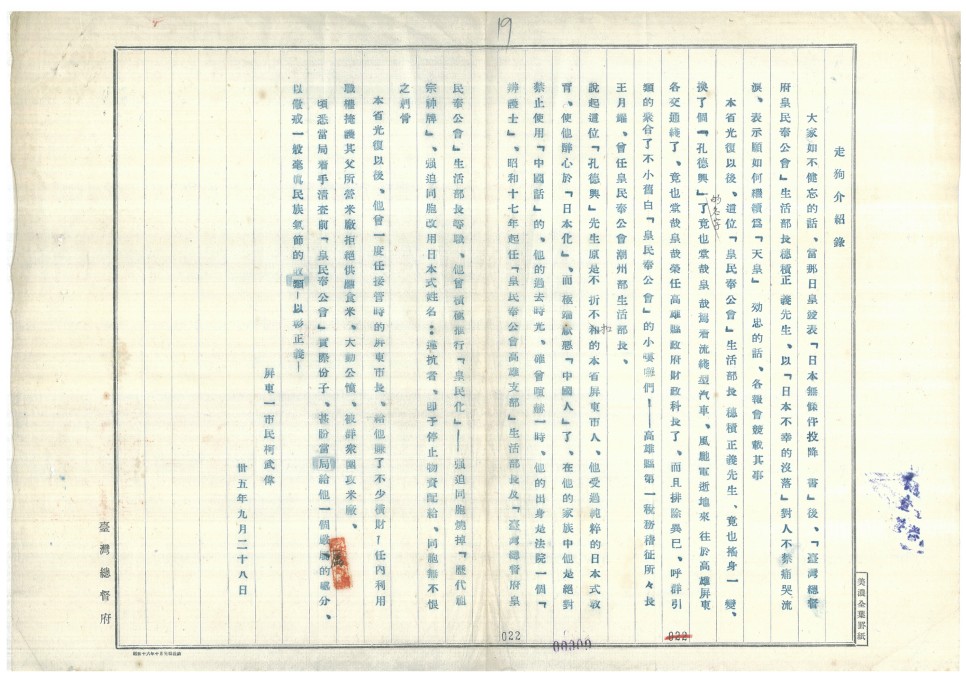 19
走狗介紹錄
大家如不健忘的話、當鄭日皇發表「日本無條件投降 書」後、「臺灣總督
府皇民奉公會」生活部長穗積正義先生、以「日本不幸的沒落」對人不禁痛哭流
淚、表示願如何繼續爲「天皇」効忠的話、各報會競載其事
本省光復以後、這位「皇民奉公會」生活部長 穗積正義先生、竟也搖身一 變、
換了個「孔德興」了竟也棠哉皇哉 着流綫型汽車、風馳電逝地來 往於高雄屏東
各交通綫了、竟也棠哉皇哉榮任高雄縣政府財政科長了、而且排除異巳、呼群引
類的 合了不小舊白「皇民奉公會」的小嘍囉們——高雄縣第一稅務稽征所々長
王月 、曾任皇民奉公會潮州部生活部長、
說起這位「孔德興」先生原是不 折不扣的本省屏東市人、他受過純粹的日本式教
育、使他醉心於「日本化」、而極端 惡「中國人」了、在他的家族中他是絕對
禁止使用「中國話」的、他的過去時光、確曾 一時、他的出身是法院一個「
辨護士」、昭和十七年起任「皇民奉公會高雄支部」生活部長及「臺灣總督府皇
民奉公會」生活部長等職、他曾積極推行「皇民化」——強迫同胞燒掉「歷代祖
宗神牌」、强迫同胞改用日本式姓名：違抗者、即予停止物資配給、同胞無不恨
之刺骨
本省光復以後、他曾一度任接管時的屏東市長、給他賺了不少橫財—任內利用
職權掩護其父所營米廠拒絕供 食米、大動公憤、被群衆圍攻米廠、
頃悉當局着手清查前「皇民奉公會」實際份子、甚盼當局給他一個 的處分、
以儆戒一般毫無民族氣節的 類—以彰正義—
屏東一市民柯武偉
卅五年九月二十八日
臺灣總督府
美濃全葉罫紙
022
022